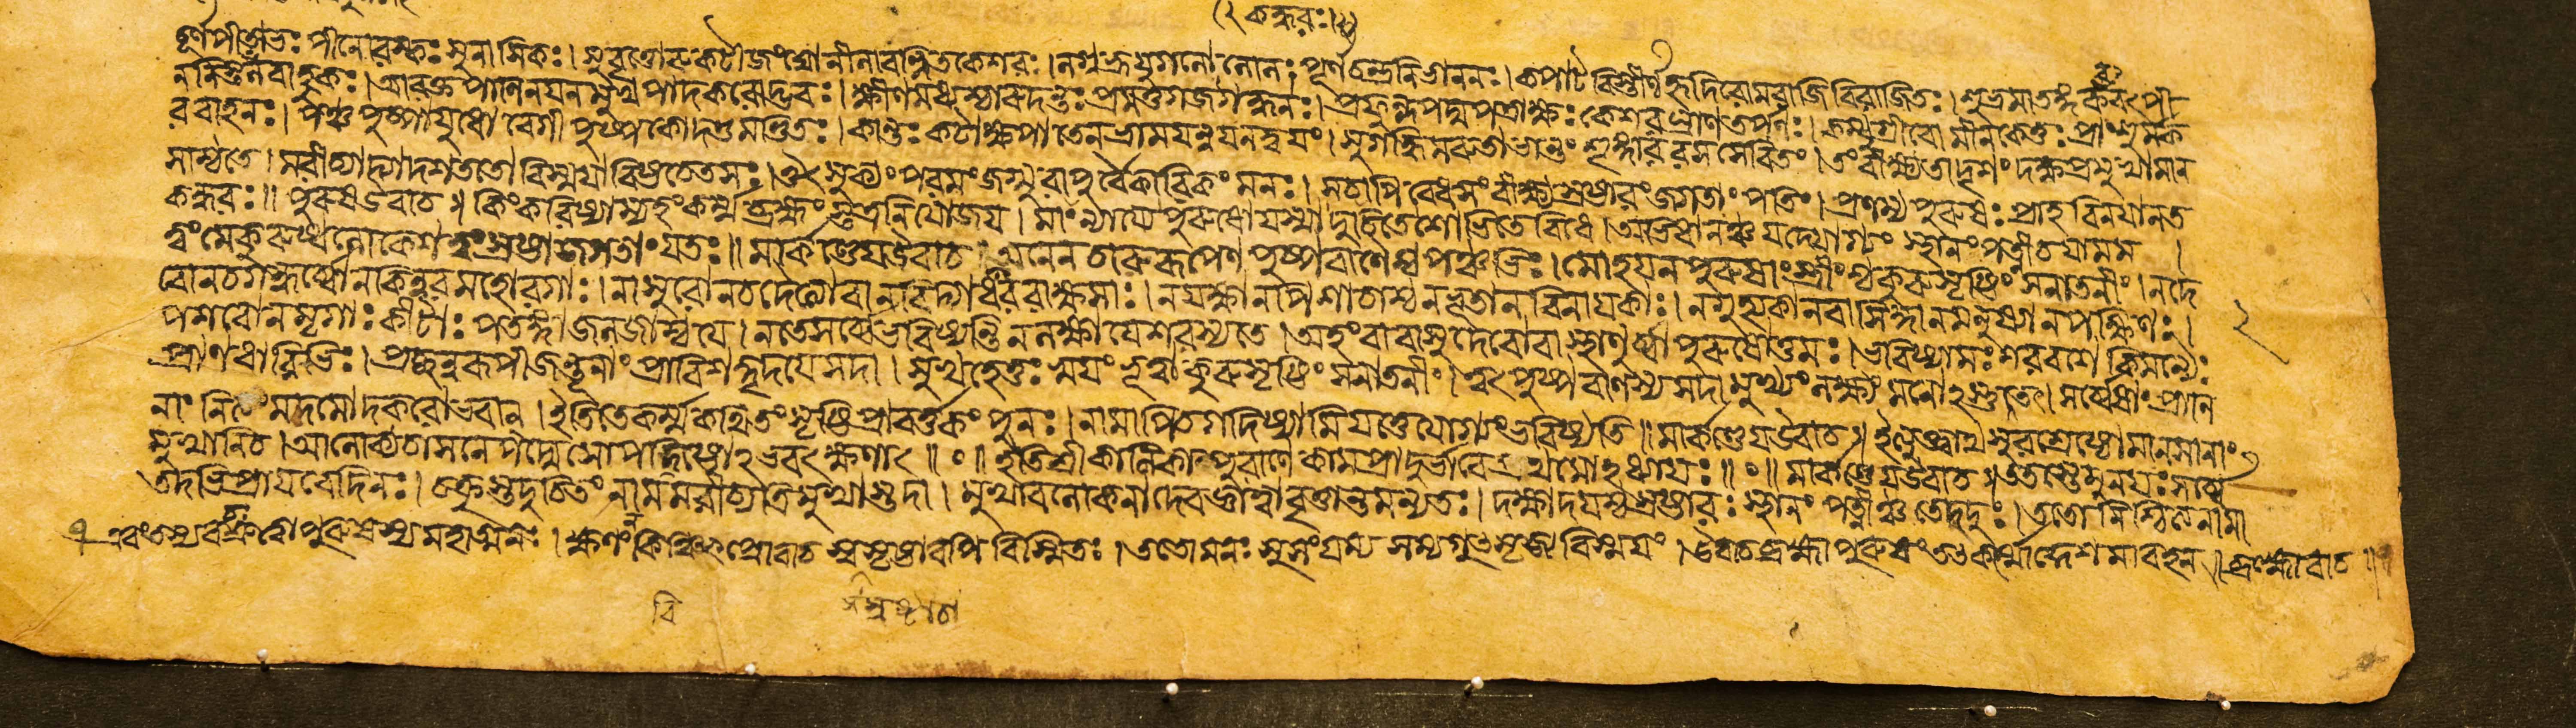 (২ কন্ধরঃ।২)
চূর্ণপীতাভঃ পীনোরস্কঃ সুনাসিকঃ। সুবৃত্তোরুকটীজংঘো নীলাবল্লিতকেশরঃ। লগ্নভ্রূযুগলো লোলঃ পূর্ণচন্দ্রনিভাননঃ। কপাটবিস্তীর্ণহৃদি রোমরাজিবিরাজিতঃ। শুভ্রমাতঙ্গকরবৎপী
ননিস্তলবাহুকঃ। আরক্তপাণিনযনমুখপাদকরোদ্ভবঃ। ক্ষীণমধ্যশ্চারুদন্তঃ প্রমত্তগজগন্ধনঃ। প্রফুল্লপদ্মপত্রাক্ষঃ কেশরঘ্রাণতর্পণঃ। কম্বুগ্রীবো মীনকেতুঃ প্রাংশুর্মক
রবাহনঃ। পঞ্চপুষ্পাযুধো বেগী পুষ্পকোদণ্ডমণ্ডিতঃ। কান্তঃ কটাক্ষপাতেন ভ্রাময়ন্নয়নদ্বয়ং। সুগন্ধিমরুতা ভ্রান্তং শৃঙ্গাররসসেবিতং। তং বীক্ষ্য তাদৃশং দক্ষপ্রমুখা মান
সাশ্চতে। মরীচ্যাদ্যা দশ ততো বিস্ময়াবিষ্টচেতসঃ। ঔৎসুক্যং পরমং জগ্মুরাপুর্বৈকারিকং মনঃ। স চাপি বেধসং বীক্ষ্য স্রষ্টারং জগতাং পতিং। প্রণম্য পুরুষঃ প্রাহ বিনয়ানত
কন্ধরঃ॥ পুরুষ উবাচ॥ কিং করিষ্যাম্যহং কর্ম্ম ব্রহ্মংস্তত্র নিযোজয়। মাং ন্যায্যে পুরুষো যস্মাদুচিতে শোভিতে বিধে। অভিধানঞ্চ যদ্যোগ্যং স্থানং পত্নী চ যা মম।
ত্বং মে কুরুষ্ব লোকেশ ত্বং স্রষ্টা জগতাং যতঃ॥ মার্কণ্ডেয় উবাচ॥ অনেন চারুরূপেণ পুষ্পবাণৈশ্চ পঞ্চভিঃ। মোহয়ন্ পুরুষাংস্ত্রীংশ্চ কুরু সৃষ্টিং সনাতনীং। ন দে
বো ন চ গন্ধর্ব্বো ন কিন্নরমহোরগাঃ। নাসুরো ন চ দৈত্যো বা ন বিদ্যাধররাক্ষসাঃ। ন যক্ষা ন পিশাচাশ্চ ন ভূতা ন বিনায়কাঃ। ন গুহ্যকা ন বা সিদ্ধা ন মনুষ্যা ন পক্ষিণঃ।
পশবো ন মৃগাঃ কীটাঃ পতঙ্গা জলজাশ্চ যে। ন তে সর্ব্বে ভবিষ্যন্তি ন লক্ষ্যা যে শরস্য তে। অহং বা বাসুদেবো বা স্থাণুর্ব্বা পুরুষোত্তমঃ। ভবিষ্যামঃ শরবশে কিমন্যৈঃ
প্রাণধারিভিঃ। প্রচ্ছন্নরূপী জন্তূনাং প্রাবিশদ্ধৃদয়ে সদা। সুখহেতুঃ স্বয়ং ভূত্বা কুরু সৃষ্টিং সনাতনীং। ত্বৎপুষ্পবাণস্য সদা মুখ্যং লক্ষ্যং মনোঽস্তু তে। সর্ব্বেষাং প্রাণি
নাং নিত্যং মদমোদকরো ভবান্। ইতি তে কর্ম্ম কথিতং সৃষ্টিপ্রাবর্ত্তকং পুনঃ। নামাপি চ গদিষ্যামি যত্তে যোগ্যং ভবিষ্যতি॥ মার্কণ্ডেয় উবাচ॥ ইত্যুক্ত্বাথ সুরশ্রেষ্ঠো মানসানাং
মুখানি চ। আলোক্য চাসনে পদ্মে সোপবিষ্টোঽভবৎ ক্ষণাৎ॥০॥ ইতি শ্রীকালিকাপুরাণে কামপ্রাদুর্ভাবে প্রথমোঽধ্যায়ঃ॥০॥ মার্কণ্ডেয় উবাচ॥ ততস্তে মুনয়ঃ সর্ব্বে
তদভিপ্রায়বেদিনঃ। চক্রুস্তদুচিতং নাম মরীচ্যত্রিমুখাস্তদা। মুখাবলোকনাদেব জ্ঞাত্বা বৃত্তান্তমন্যতঃ। দক্ষাদয়শ্চ স্রষ্টারঃ স্থানং পত্নীঞ্চ তে দদুঃ। ততো নিশ্চিত্য নামা
এবং তস্য বচঃ শ্রুত্বা পুরুষস্য মহাত্মনঃ। ক্ষণং ন কিঞ্চিৎ প্রোবাচ স্বসৃষ্টাবপি বিস্মিতঃ। ততো মনঃ সুসংযম্য সম্যগুৎসৃজ্য বিস্ময়ং। উবাচ ব্রহ্মা পুরুষং তৎকর্ম্মোদ্দেশমাবহন্॥ ব্রহ্মোবাচ॥
২
বি